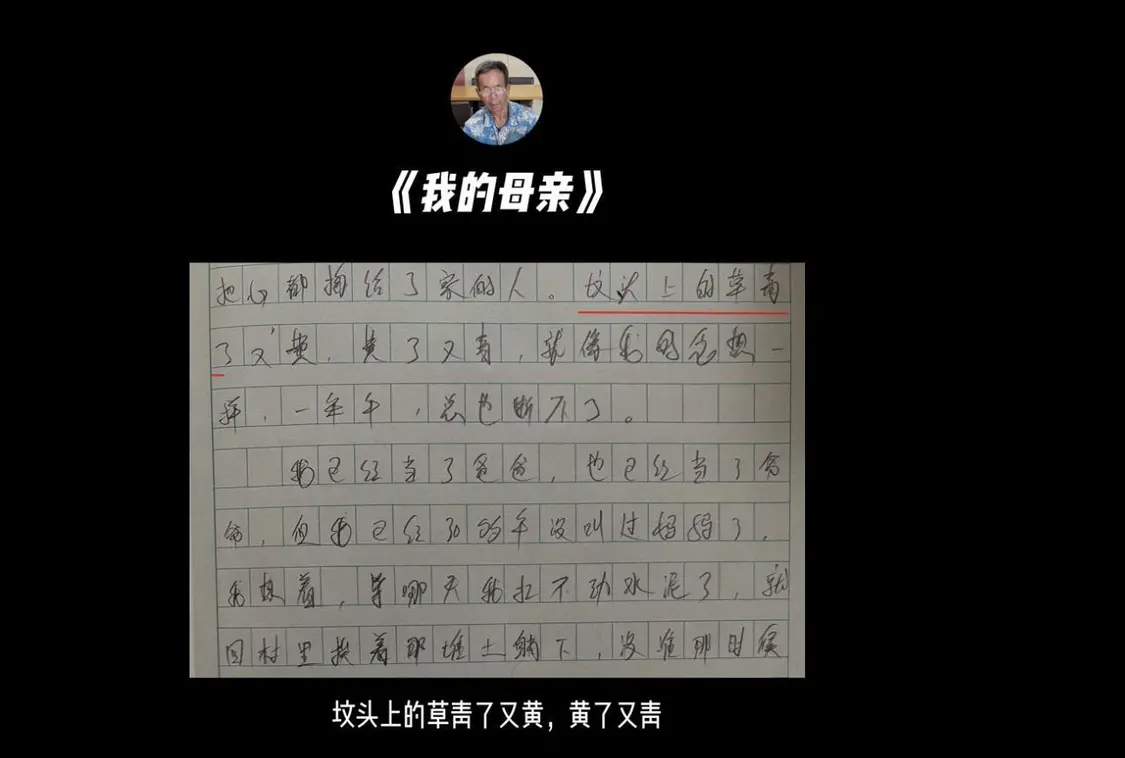 《我的母亲》
把心都掏给了家的人。坟头上的草青
了又黄，黄了又青，就像我的念想一
样，一年年，总也断不了。
我已经当了爸爸，也已经当了爷
爷，但我已经30多年没叫过妈妈了，
我想着，等哪天我扛不动水泥了，就
回村里挨着那堆土躺下，没准那时候
坟头上的草青了又黄，黄了又青